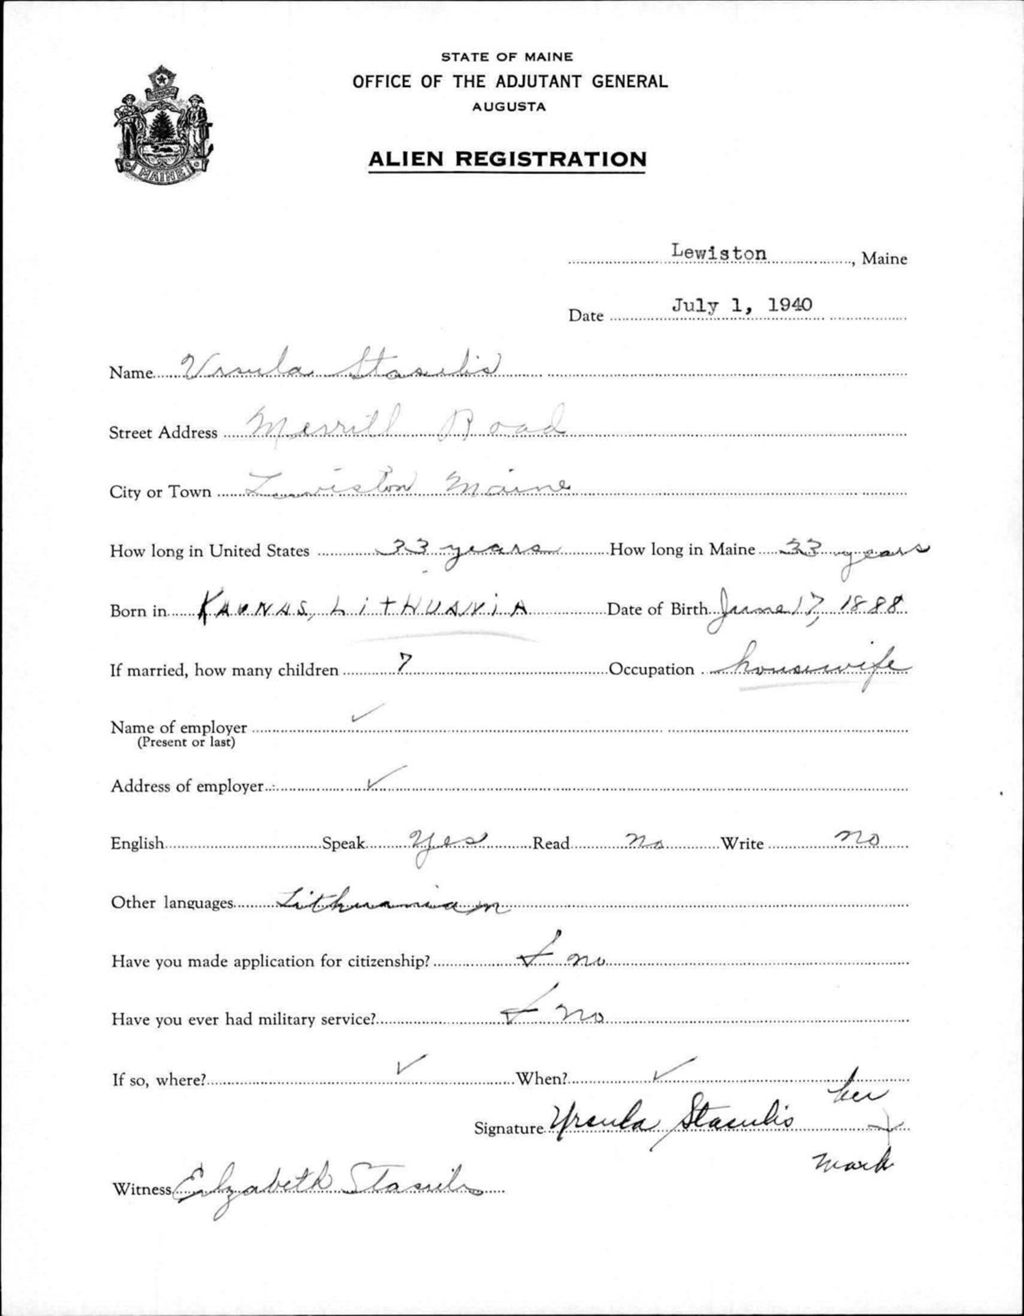 STATE OF MAINE
OFFICE OF THE ADJUTANT GENERAL
AUGUSTA
ALIEN REGISTRATION
MAINE
Lewiston, Maine
Date July 1, 1940
Name Ursula Stasulis
Street Address Merrill Road
City or Town Lewiston Maine
How long in United States 33 years How long in Maine 33 years
Born in Kaunas, Lithuania Date of Birth June 17, 1888
If married, how many children 7 Occupation housewife
Name of employer ✓
(Present or last)
Address of employer ✓
English Speak Yes Read no Write no
Other languages Lithuanian
Have you made application for citizenship? no
Have you ever had military service? no
If so, where? ✓ When? ✓
her
Signature Ursula Stasulis X
mark
Witness Elzabeth Stasulis